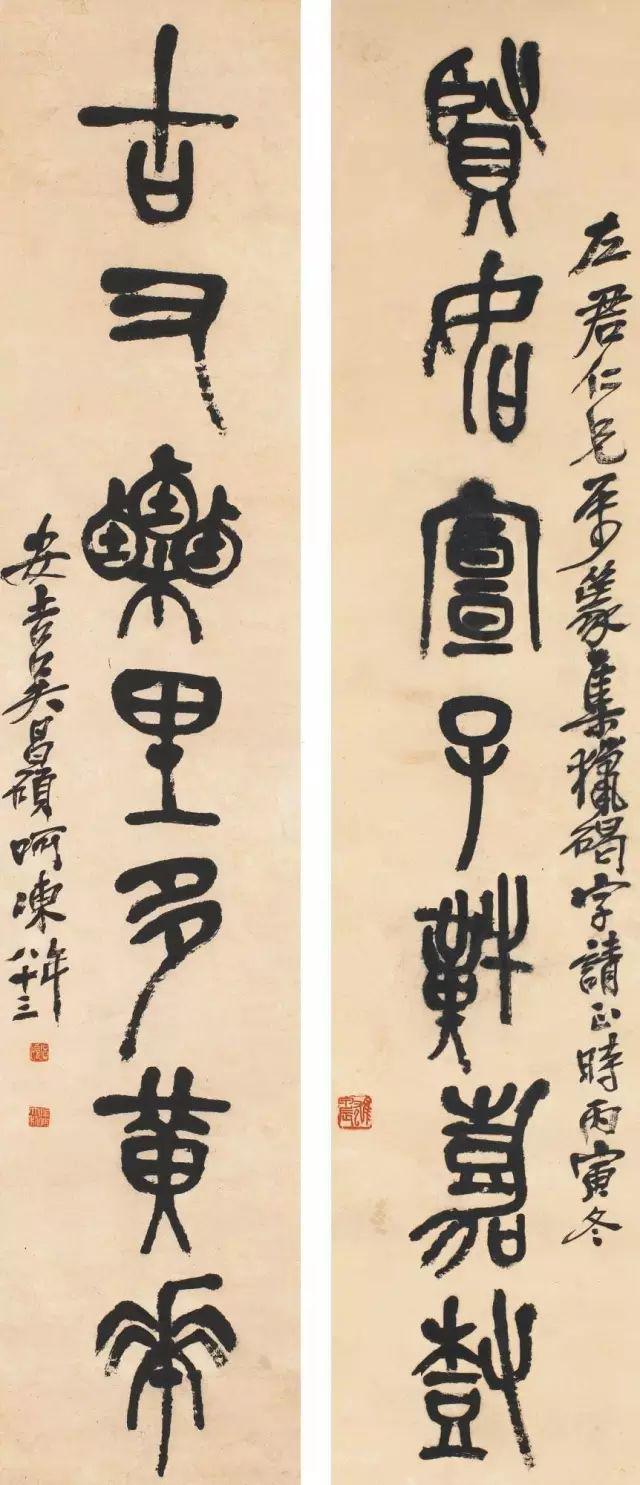 左君仁兄屬篆集獵碣字請正時丙寅冬
賢宣子嘉樹
古又樂里多黃華
安吉吳昌碩呵凍年八十三